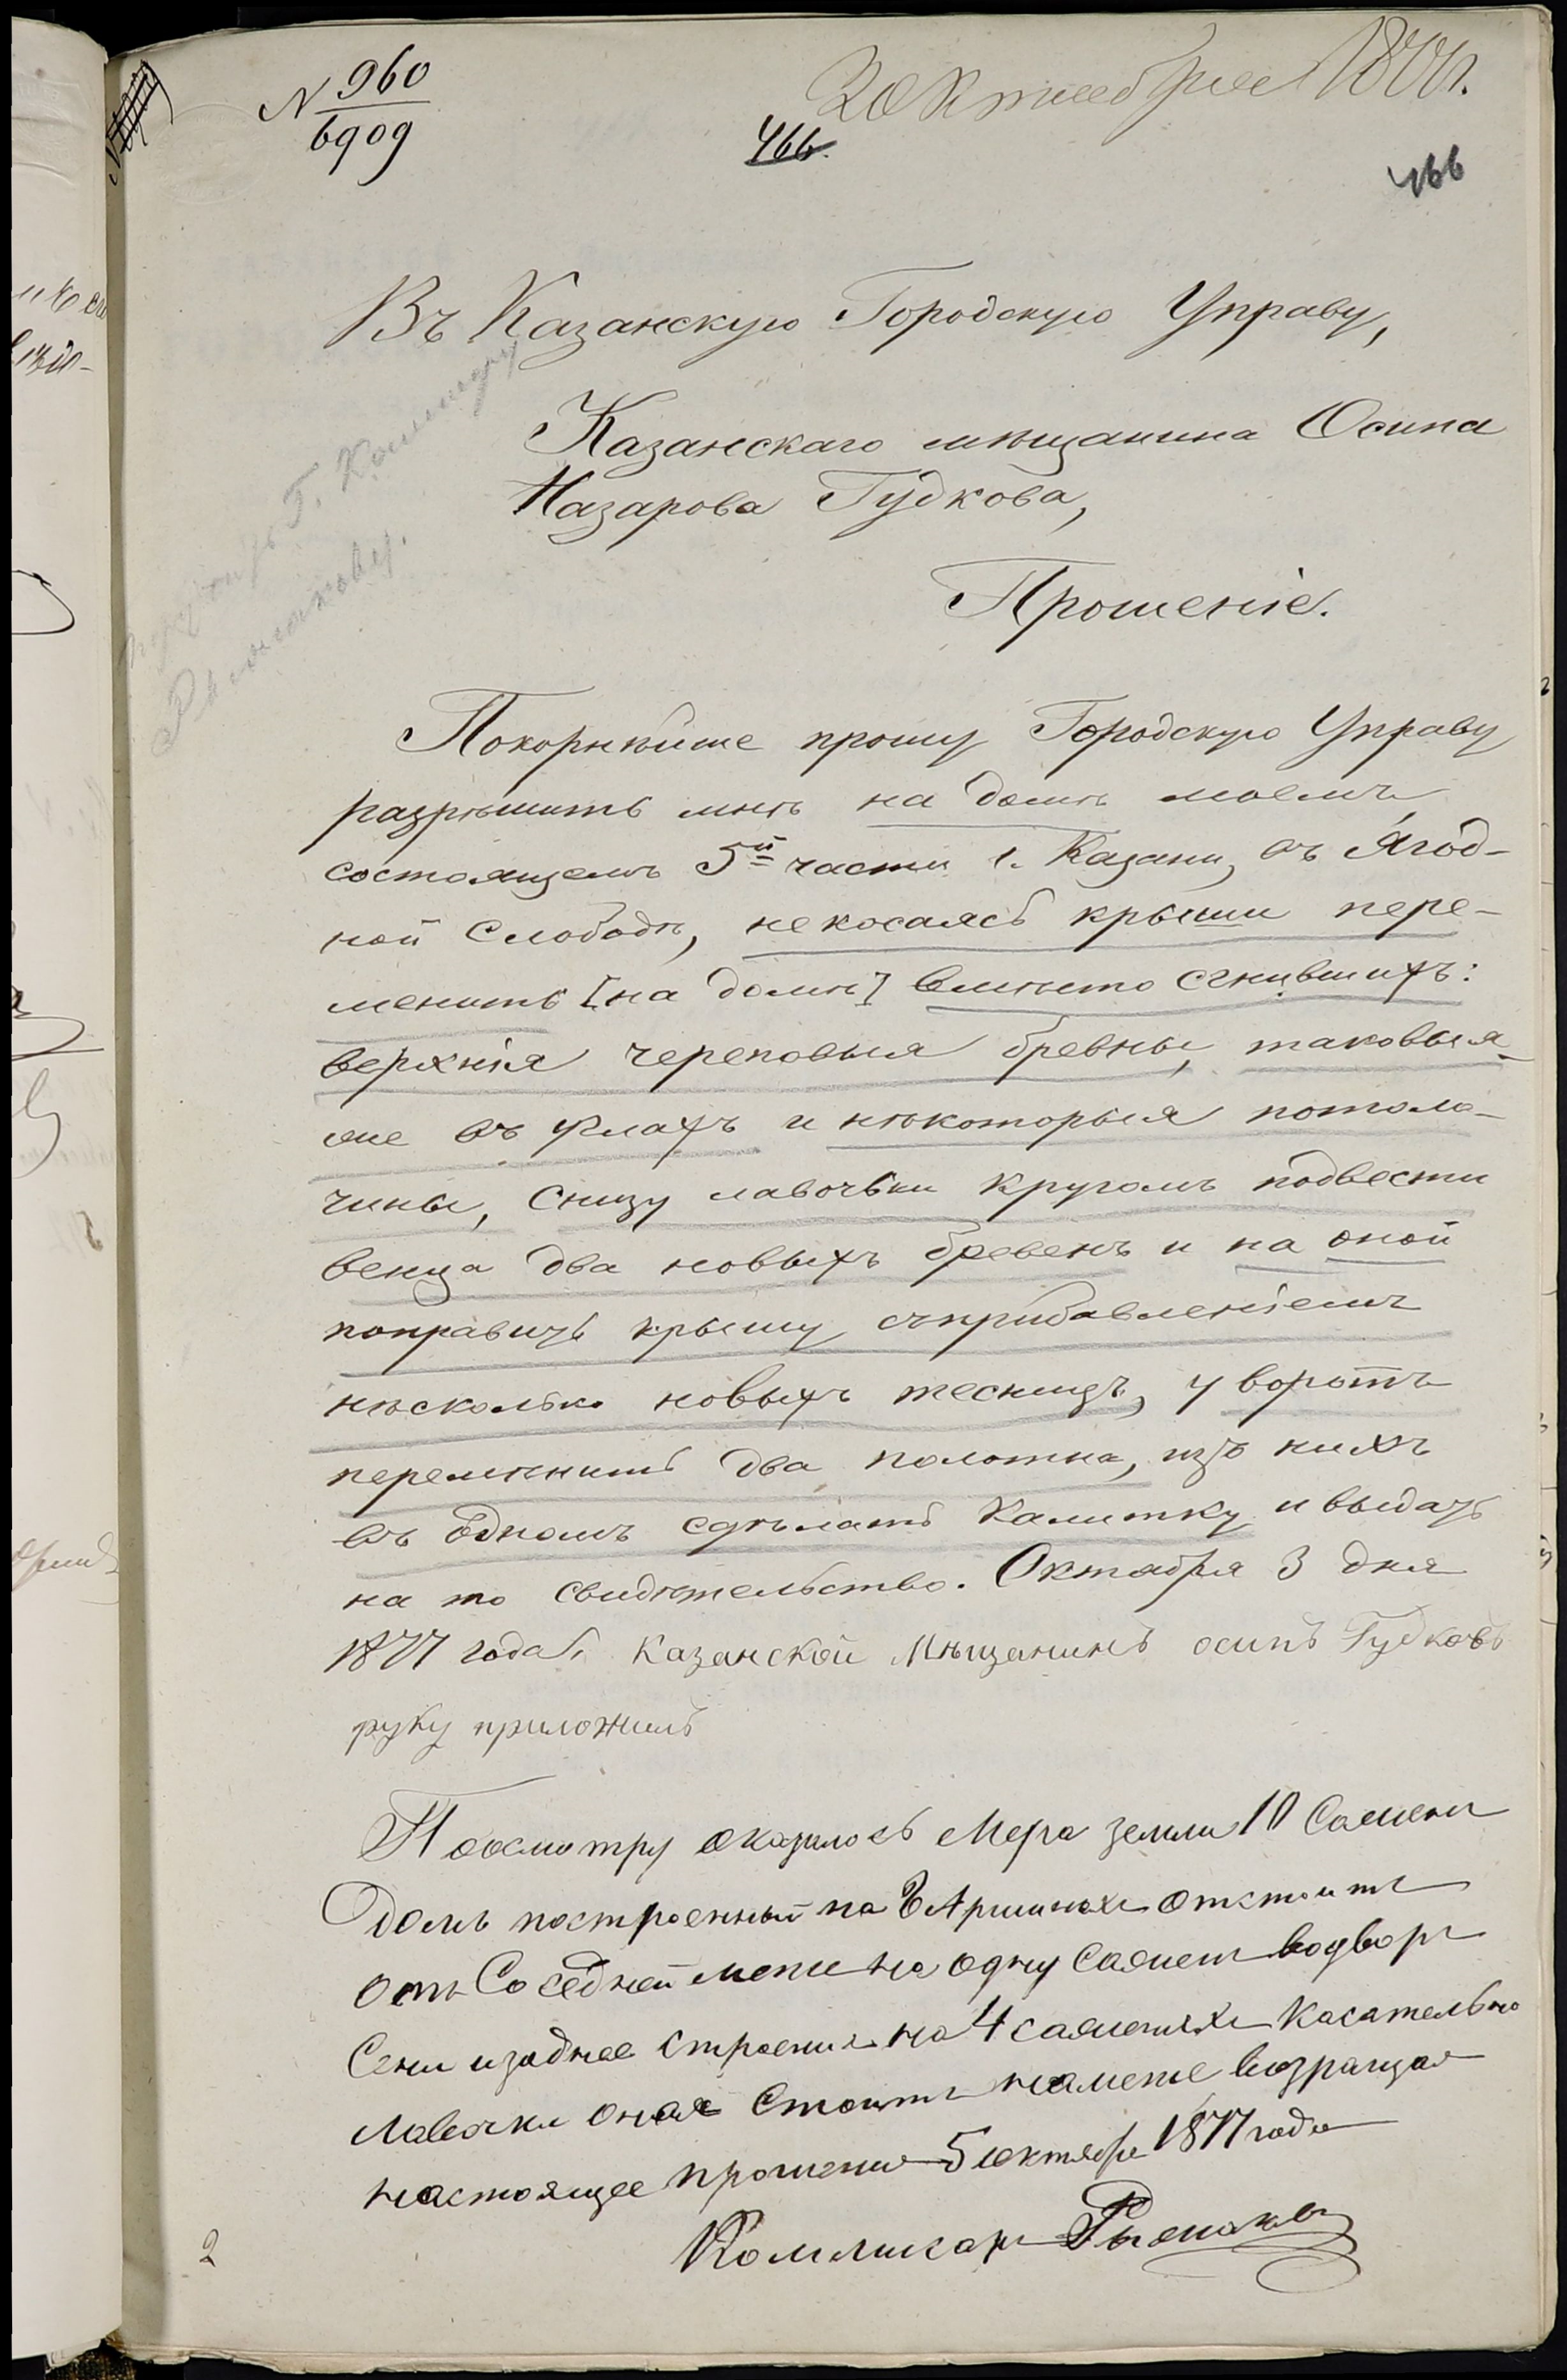 N 960
6909
466.
466
Въ Казанскую Городскую Управу,
Казанскаго мѣщанина Осипа
Назарова Гудкова,
Прошеніе.
Г. Комиссару
Покорнѣйше прошу Городскую Управу
разрѣшить мнѣ на домѣ моемъ,
состоящемъ 5й части г. Казани, въ Ягод-
ной Слободѣ, некосаясь крыши пере-
менить [на домѣ] вмѣсто сгнившихъ:
верхнія череповыя бревны, таковыя-
же въ углахъ и нѣкоторыя потоло-
чины, Снизу лавочьки кругомъ подвести
венца два новыхъ бревенъ и на оной
поправить крышу съприбавленіемъ
нѣсколько новыхъ тесницъ, у воротъ
перемѣнить два полотна, изъ нихъ
въ Одномъ сдѣлать Калитку и выдать
на то свидѣтельство. Октября 3 дня
1877 года. Казанской Мѣщанинъ осипъ Гудковъ
руку приложилъ
Поосмотру оказалось Мера земли 10 Сажени
домъ построенный на 8 Аршинахъ отстоитъ
отъ Соседней межи на одну Сажень водворъ
Сени изаднее Строение на 4 саженяхъ Касательно
Лавочки оная Стоитъ намеже возращая
настоящее прошение 5 октября 1877 года
Коммисаръ
2